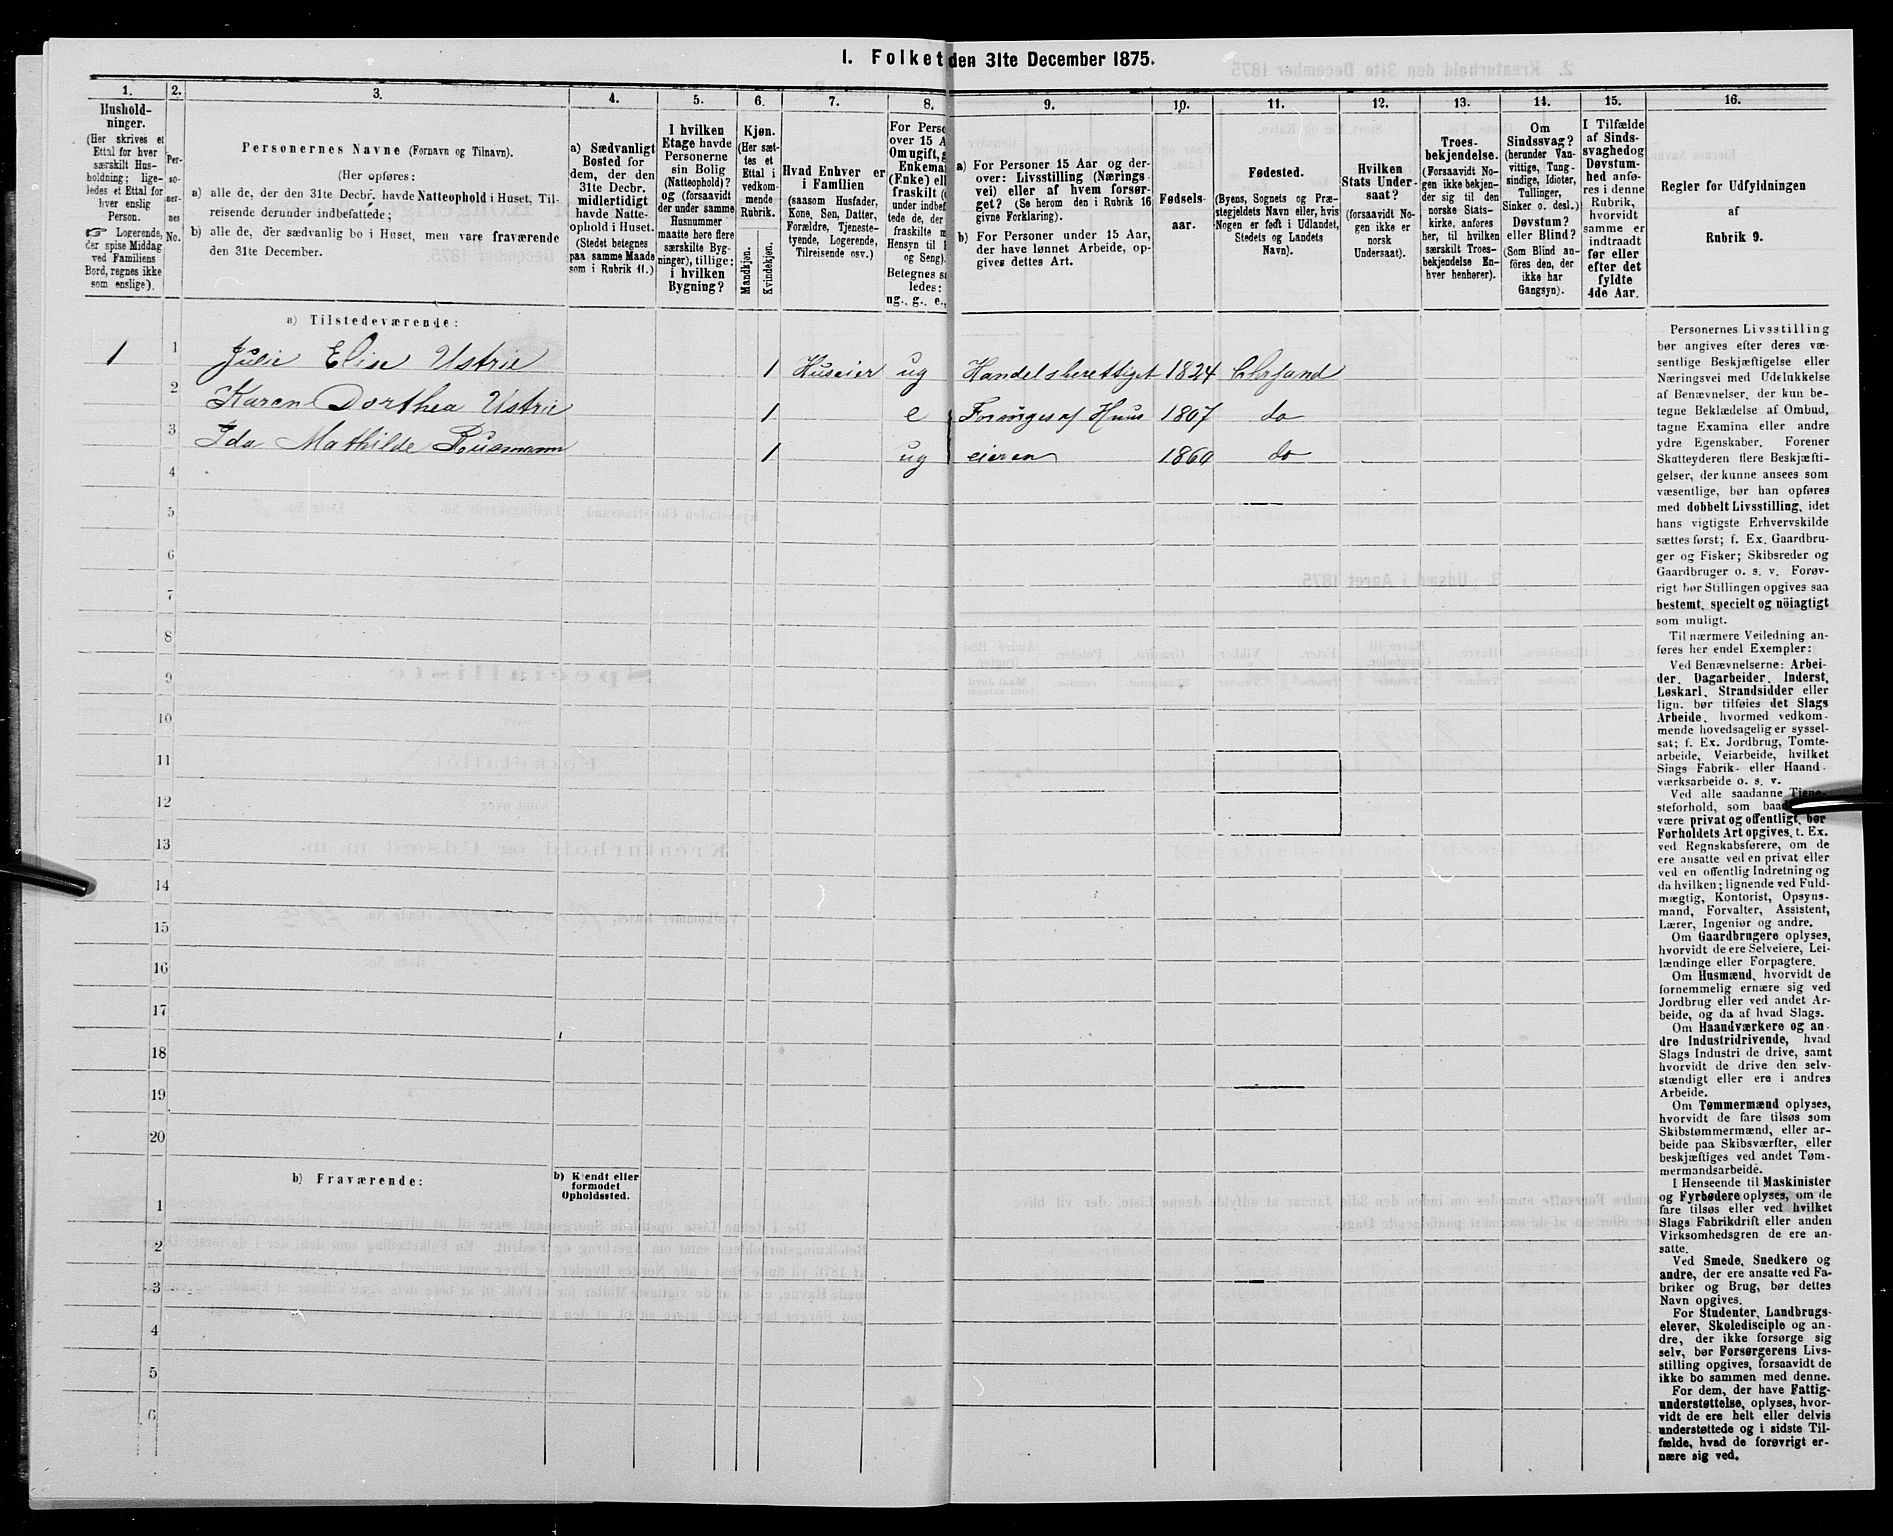 I. Folket den 31te December 1875.
1. 2. 3. 4. 5. 6. 7. 8. 9. 10. 11. 12. 13. 14. 15. 16.
Hushold-
ninger.
(Her skrives et
Ettal for hver
særskilt Hus-
holdning; lige-
ledes et Ettal for
hver enslig
Person.
Logerende,
der spise Middag
ved Familiens
Bord, regnes ikke
som enslige).
Per-
so-
ner-
nes
No.
Personernes Navne (Fornavn og Tilnavn).
(Her opføres:
a) alle de, der den 31te Decbr. havde Natteophold i Huset, Til-
reisende derunder indbefattede;
b) alle de, der sædvanlig bo i Huset, men vare fraværende
den 31te December.
a) Sædvanligt
Bosted for
dem, der den
31te Decbr.
midlertidigt
havde Natte-
ophold i Huset.
(Stedet betegnes
paa samme Maade
som i Rubrik 11.)
I hvilken
Etage havde
Personerne
sin Bolig
(Natteophold)?
og (forsaavidt
der under samme
Husnummer
maatte høre flere
særskilte Byg-
ninger), tillige:
i hvilken
Bygning?
Kjøn.
(Her sæt-
tes et
Ettal i
vedkom-
mende
Rubrik.
Mandkjøn.
Kvindekjøn.
Hvad Enhver er
i Familien
(saasom Husfader,
Kone, Søn, Datter,
Forældre, Tjeneste-
tyende, Logerende,
Tilreisende osv.)
For Perso
over 15 A
Om ugift, g
Enkema
(Enke) el
fraskilt (
under indbef
tede de, der
fraskilte m
Hensyn til
og Seng).
Betegnes s
ledes:
ug., g., e.,
a) For Personer 15 Aar og der-
over: Livsstilling (Nærings
vei) eller af hvem forsør-
get? (Se herom den i Rubrik 16
givne Forklaring).
b) For Personer under 15 Aar,
der have lønnet Arbeide, op-
gives dettes Art.
Fødsels-
aar.
Fødested.
(Byens, Sognets og Præ-
stegjeldets Navn eller, hvis
Nogen er født i Udlandet,
Stedets og Landets
Navn).
Hvilken
Stats Under-
saat?
(forsaavidt No-
gen ikke er
norsk
Undersaat).
Troes-
bekjendelse.
(Forsaavidt No-
gen ikke bekjen-
der sig til den
norske Stats-
kirke, anføres
her, til hvilken
særskilt Troes-
bekjendelse En-
hver henhører).
Om
Sindssvag?
(herunder Van-
vittige, Tung-
sindige, Idioter,
Tullinger,
Sinker o. desl.)
Døvstum?
eller Blind?
(Som Blind an-
føres den, der
ikke har
Gangsyn).
I Tilfælde
af Sinds-
svaghed og
Døvstum-
hed anfø-
res i denne
Rubrik,
hvorvidt
samme er
indtraadt
før eller
efter det
fyldte
4de Aar.
Regler for Udfyldningen
af
Rubrik 9.
a) Tilstedeværende:
1 1 Julie Elise Ustrie 1 Huseier ug Handelsberettiget 1824 Chrsand
2 Karen Dorthea Ustrie 1 e Forsørges af Huus 1807 do
3 Ida Mathilde 1 ug eieren 1860 do
4
5
6
7
8
9
10
11
12
13
14
15
16
17
18
19
20
b) Fraværende:
b) Kjendt eller
formodet
Opholdssted.
1
2
3
4
5
6
Personernes Livsstilling
bør angives efter deres væ-
sentlige Beskjæftigelse eller
Næringsvei med Udelukkelse
af Benævnelser, der kun be-
tegne Beklædelse af Ombud,
tagne Examina eller andre
ydre Egenskaber. Forener
Skatteyderen flere Beskjæfti-
gelser, der kunne ansees som
væsentlige, bør han opføres
med dobbelt Livsstilling, idet
hans vigtigste Erhvervskilde
sættes først; f. Ex. Gaardbru-
ger og Fisker; Skibsreder og
Gaardbruger o. s. v. Forøv-
rigt bør Stillingen opgives saa
bestemt, specielt og nöiagtigt
som muligt.
Til nærmere Veiledning an-
føres her endel Exempler:
Ved Benævnelserne: Arbei-
der, Dagarbeider, Inderst,
Løskarl, Strandsidder eller
lign. bør tilføies det Slags
Arbeide, hvormed vedkom-
mende hovedsagelig er syssel-
sat; f. Ex. Jordbrug, Tomte-
arbeide, Veiarbeide, hvilket
Slags Fabrik- eller Haand-
værksarbeide o. s. v.
Ved alle saadanne Tjene-
steforhold, som
være privat og offentligt, bør
Forholdets Art opgives, t. Ex.
ved Regnskabsførere, om de
ere ansatte ved en privat eller
ved en offentlig Indretning og
da hvilken; lignende ved Fuld-
mægtig, Kontorist, Opsyns-
mand, Forvalter, Assistent,
Lærer, Ingeniør og andre.
Om Gaardbrugere oplyses,
hvorvidt de ere Selveiere, Lei-
lændinge eller Forpagtere.
Om Husmænd, hvorvidt de
fornemmelig ernære sig ved
Jordbrug eller ved andet Ar-
beide, og da af hvad Slags.
Om Haandværkere og an-
dre Industridrivende, hvad
Slags Industri de drive, samt
hvorvidt de drive den selv-
stændigt eller ere i andres
Arbeide.
Om Tømmermænd oplyses,
hvorvidt de fare tilsøs som
Skibstømmermænd, eller ar-
beide paa Skibsværfter, eller
beskjæftiges ved andet Tøm-
mermandsarbeide.
I Henseende til Maskinister
og Fyrbødere oplyses, om de
fare tilsøs eller ved hvilket
Slags Fabrikdrift eller anden
Virksomhedsgren de ere an-
satte.
Ved Smede, Snedkere og
andre, der ere ansatte ved Fa-
briker og Brug, bør dettes
Navn opgives.
For Studenter, Landbrugs-
elever, Skoledisciple og an-
dre, der ikke forsørge sig
selv, bør Forsørgerens Livs-
stilling opgives, forsaavidt de
ikke bo sammen med denne.
For dem, der have Fattig-
understøttelse, oplyses, hvor-
vidt de ere helt eller delvis
understøttede og i sidste Til-
fælde, hvad de forøvrigt er-
nære sig ved.